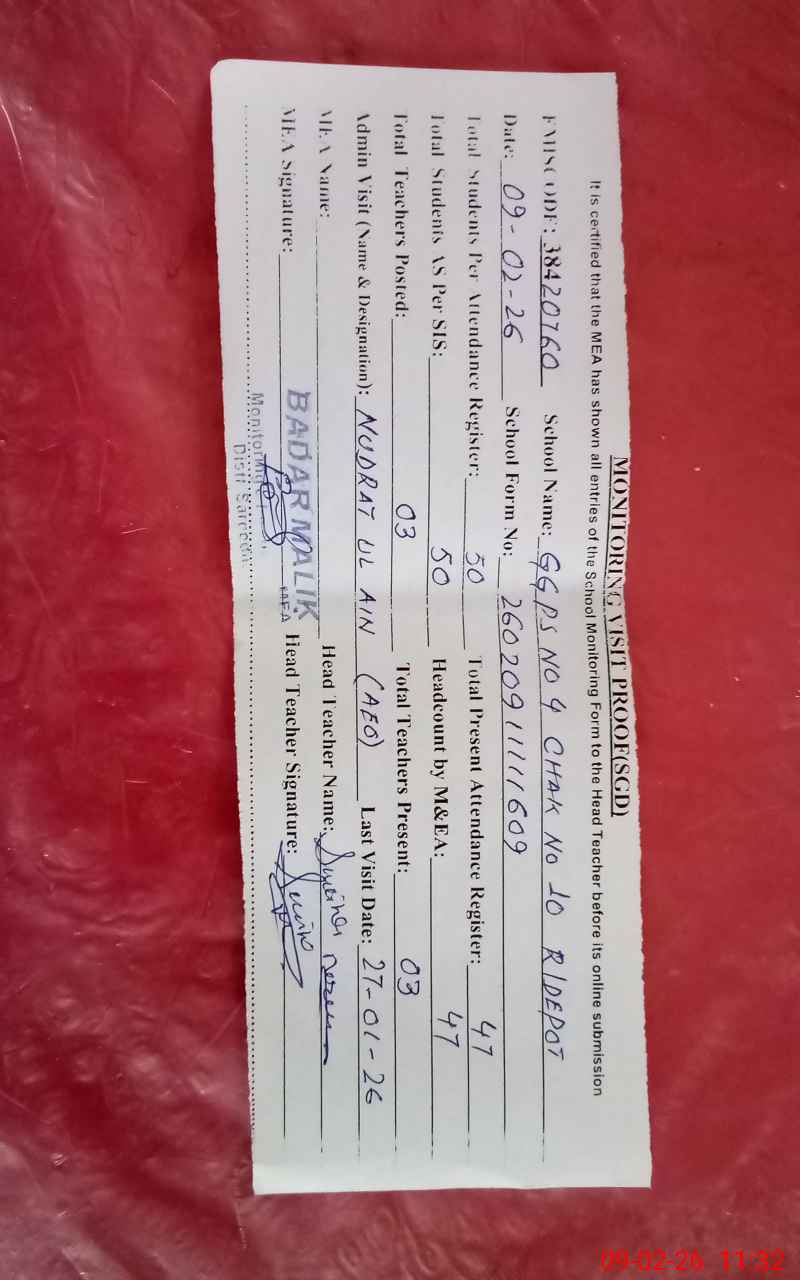 MONITORING VISIT PROOF(SGD)
It is certified that the MEA has shown all entries of the School Monitoring Form to the Head Teacher before its online submission
EMISCODE: 38420760 School Name: GGPS NO 4 CHAK NO 10 R/DEPOT
Date: 09-02-26 School Form No: 260209111111609
Total Students Per Attendance Register: 50 Total Present Attendance Register: 47
Total Students AS Per SIS: 50 Headcount by M&EA: 47
Total Teachers Posted: 03 Total Teachers Present: 03
Admin Visit (Name & Designation): NUDRAT UL AIN (AEO) Last Visit Date: 27-01-26
MEA Name: Head Teacher Name:
MEA Signature: BADAR MALIK MEA Head Teacher Signature:
Monitoring
Distt: Sargodha
09-02-26 11:32